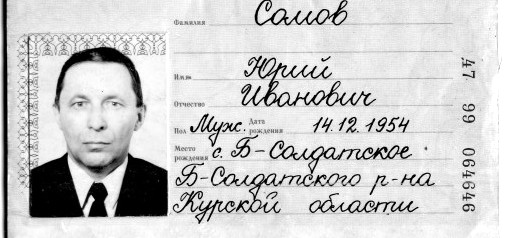 Фамилия Сомов
Имя Юрий
Отчество Иванович
Пол Муж. Дата рождения 14.12.1954
Место рождения с. Б-Солдатское
Б-Солдатского р-на
Курской области
47 99 064646